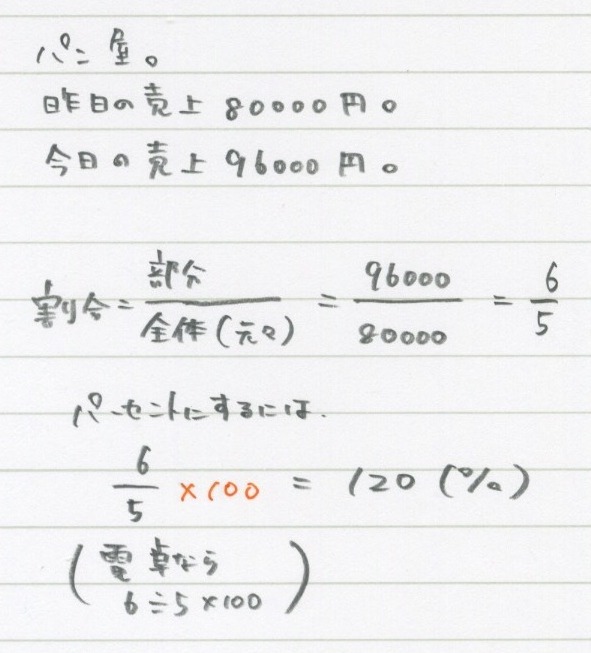 パン屋。
昨日の売上 80000円。
今日の売上 96000円。
割り合 = 部分/全体(元々) = 96000/80000 = 6/5
パーセントにするには.
6/5 ×100 = 120 (%)
(電卓なら
6÷5×100)